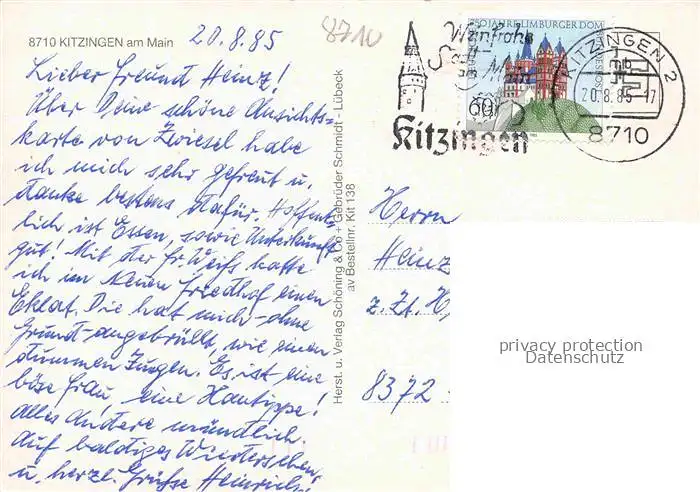 8710 KITZINGEN am Main
20.8.85
8710
Lieber Freund Heinz!
Über Deine schöne Ansichts-
karte von Zwiesel habe
ich mich sehr gefreut u.
danke bestens dafür. Hoffent-
lich ist Essen, sowie Unterkunft
gut! Mit der Fr. Weiß hatte
ich im Neuen Friedhof einen
Eklat. Die hat mich - ohne
Grund - angebrüllt, wie einen
dummen Jungen. Es ist eine
böse Frau, eine Xantippe!
Alles Andere mündlich.
Auf baldiges Wiedersehen,
u. herzl. Grüße Heinrich
Herst. u. Verlag Schöning & Co + Gebrüder Schmidt - Lübeck
av Bestellnr. Kit 138
750 JAHRE LIMBURGER DOM
60
Weinfrohe
Stadt
Main
Kitzingen
KITZINGEN 2
mb
20.8.85-17
8710
Herrn
Heinz
z. Zt. H
8372
privacy protection
Datenschutz